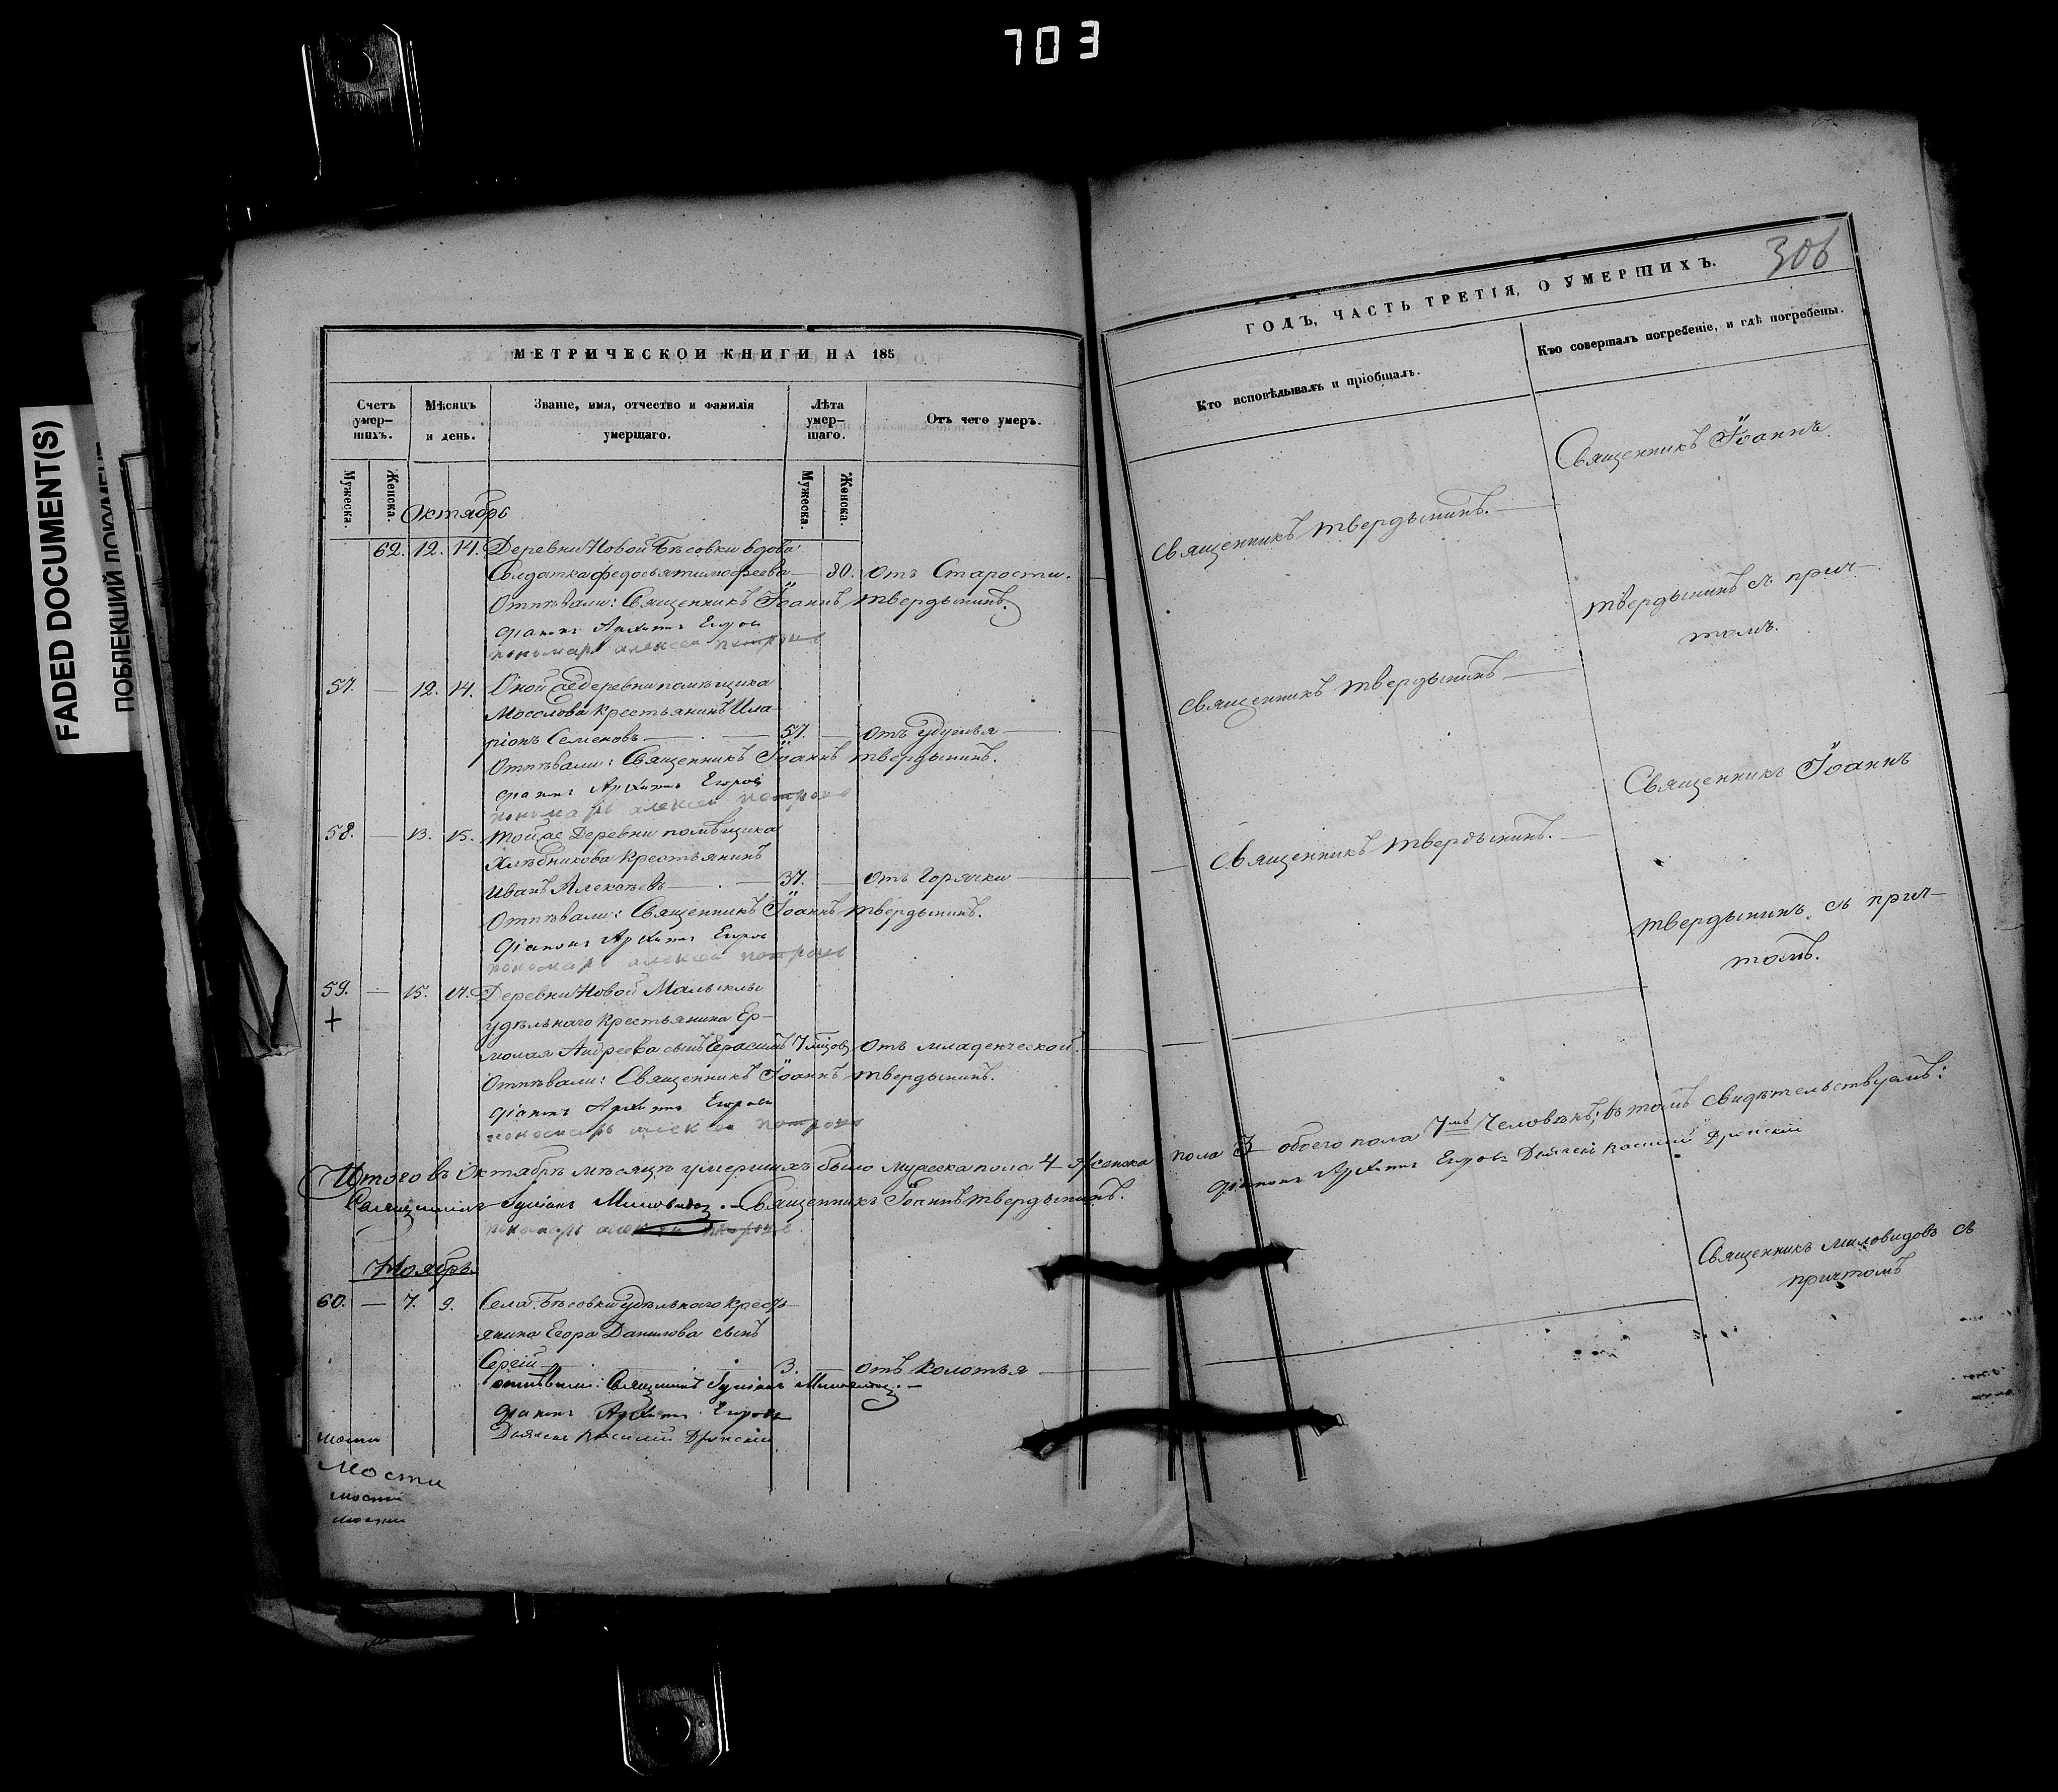 703
FADED DOCUMENT(S)
ПОБЛЕКШИЙ ДОКУМЕНТ
МЕТРИЧЕСКОЙ КНИГИ НА 185
Счетъ умер-шихъ.
Мѣсяцъ и день.
Званіе, имя, отчество и фамилія умершаго.
Лѣта умер-шаго.
Отъ чего умеръ.
Мужеска. Женска. Мужеска. Женска.
Октябрь
62. 12. 14. Деревни Новой Бѣсовки вдова
Солдатка Федосья Тимофеева — 80. отъ Старости.
Отпѣвали: Священникъ Іоаннъ Твердынинъ.
діаконъ Архипъ Егровъ
пономарь алексей петровъ
57. — 12. 14. Оной же деревни помѣщика
Мосолова Крестьянинъ Ила-
ріонъ Семеновъ — 57. — отъ удушья
Отпѣвали: Священникъ Іоаннъ Твердынинъ.
діаконъ Архипъ Егоровъ
пономарь алексей петровъ
58. — 13. 15. Той же Деревни помѣщика
Хлѣбникова Крестьянинъ
Иванъ Алексѣевъ — 37. — отъ Горячки
Отпѣвали: Священникъ Іоаннъ Твердынинъ.
діаконъ Архипъ Егоровъ
пономарь алексей петровъ
59. — 15. 17. Деревни Новой Малыклы
+
удѣльнаго Крестьянина Ер-
молая Андреева сынъ Герасимъ 7 мѣсяцовъ Отъ младенческой.
Отпѣвали: Священникъ Іоаннъ Твердынинъ.
діаконъ Архипъ Егоровъ
пономарь алексей петровъ
Итого въ Октябрѣ мѣсяцѣ умершихъ было мужеска пола 4 женска
Священникъ Миловидовъ. — Священникъ Іоаннъ Твердынинъ.
пономарь алексей петровъ
Ноябрь
60. — 7. 9. Села Бѣсовки удѣльнаго кресть-
янина Егора Данилова сынъ
Сергій — 3. — отъ Колотья
отпѣвали: Священникъ Миловидовъ. —
діаконъ Архипъ Егоровъ
Дьячекъ Василій Дронскій
мости
Мости
мости
мости
306
ГОДЪ, ЧАСТЬ ТРЕТІЯ, О УМЕРШИХЪ.
Кто исповѣдывалъ и пріобщалъ.
Кто совершалъ погребеніе, и гдѣ погребены.
Священникъ Іоаннъ
Священникъ Твердынинъ. —
Твердынинъ съ прич-
томъ.
Священникъ Твердынинъ —
Священникъ Іоаннъ
Священникъ Твердынинъ. —
Твердынинъ съ прич-
томъ.
пола 3 обоего пола 7мь Человѣкъ; въ томъ свидѣтельствуемъ:
діаконъ Архипъ Егровъ Дьячекъ Василій Дронскій
Священникъ Миловидовъ съ
причтомъ